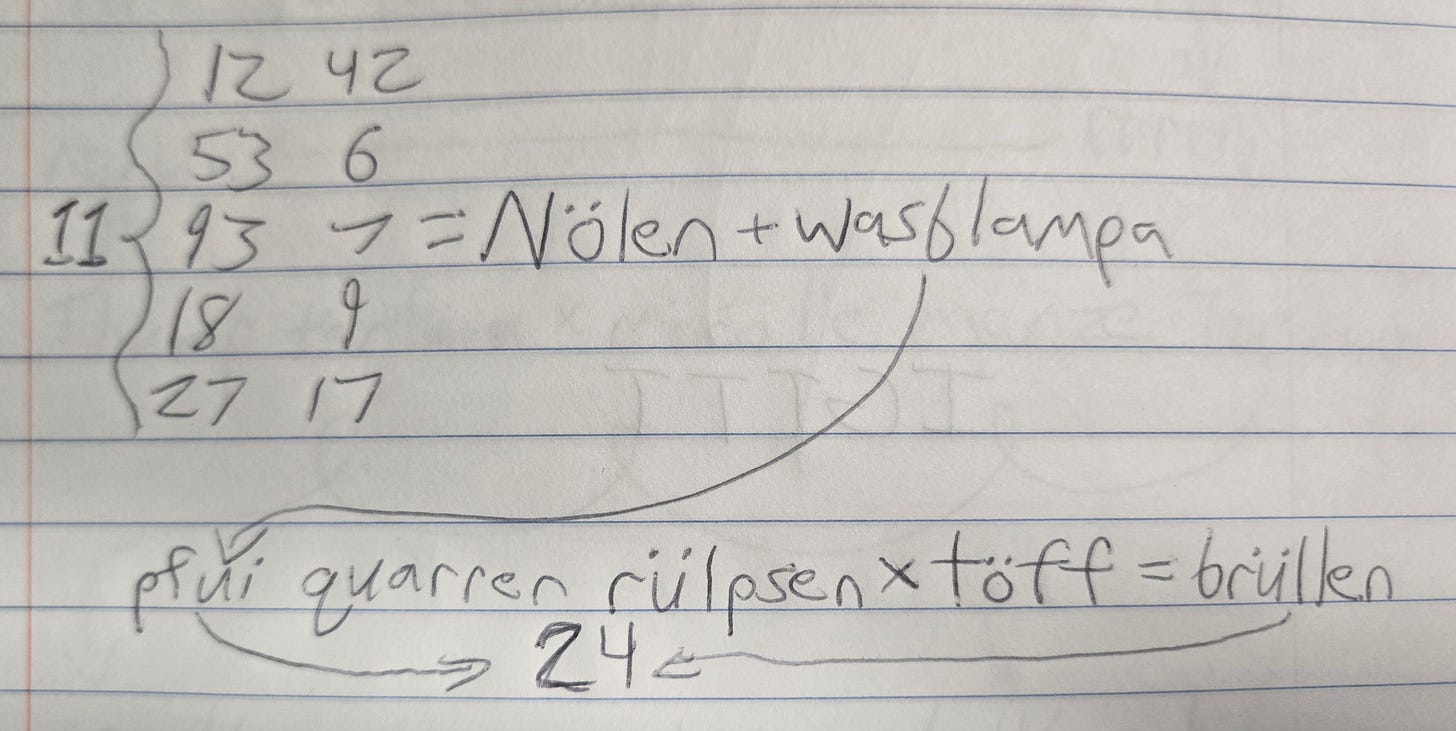 12 42
53 6
11 93 7 = Nölen + wasblampa
18 9
27 17
pfui quarren rülpsen x töff = brüllen
24